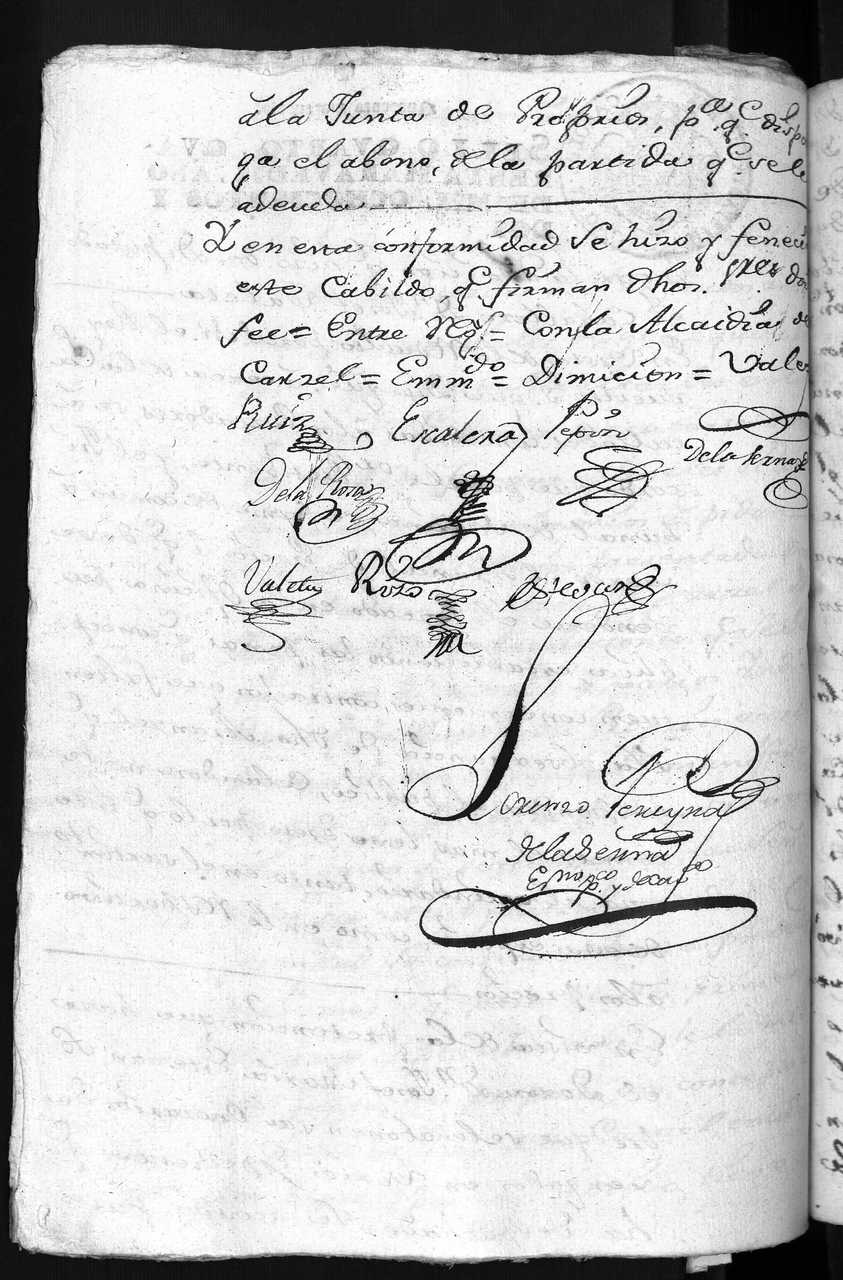 a la Junta de Proprios, pa. qe. dispo
ga el abono, de la partida qe. se le
adeuda
Y en esta conformidad se hizo y fenecio
este Cabildo, qe. firman dhos. sres. doi
fee = Entre Rgs. = Con la Alcaidia de
Carzel = Emmdo. = Dimicion = Vale
Ruiz Escalera Pepin
De la Serna
De la Rosa
Rozo
Lorenzo Pereyra
de la Serna
Esno. pco. y de Cavdo.